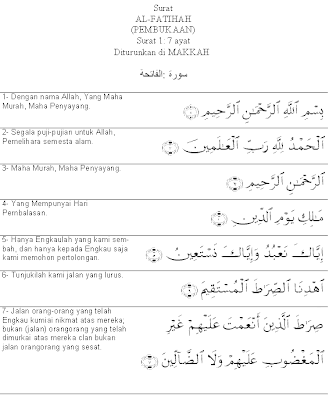 Surat
AL-FATIHAH
(PEMBUKAAN)
Surat 1: 7 ayat
Diturunkan di MAKKAH
سورة الفاتحة:
1- Dengan nama Allah, Yang Maha
Murah, Maha Penyayang.
بِسْمِ ٱللَّهِ ٱلرَّحْمَـٰنِ ٱلرَّحِيمِ ۝١
2- Segala puji-pujian untuk Allah,
Pemelihara semesta alam.
ٱلْحَمْدُ لِلَّهِ رَبِّ ٱلْعَـٰلَمِينَ ۝٢
3- Maha Murah, Maha Penyayang.
ٱلرَّحْمَـٰنِ ٱلرَّحِيمِ ۝٣
4- Yang Mempunyai Hari
Pembalasan.
مَـٰلِكِ يَوْمِ ٱلدِّينِ ۝٤
5- Hanya Engkaulah yang kami sem-
bah, dan hanya kepada Engkau saja
kami memohon pertolongan.
إِيَّاكَ نَعْبُدُ وَإِيَّاكَ نَسْتَعِينُ ۝٥
6- Tunjukilah kami jalan yang lurus.
ٱهْدِنَا ٱلصِّرَٰطَ ٱلْمُسْتَقِيمَ ۝٦
7- Jalan orang-orang yang telah
Engkau kurniai nikmat atas mereka;
bukan (jalan) orangorang yang telah
dimurkai atas mereka clan bukan
jalan orangorang yang sesat.
صِرَٰطَ ٱلَّذِينَ أَنْعَمْتَ عَلَيْهِمْ غَيْرِ
ٱلْمَغْضُوبِ عَلَيْهِمْ وَلَا ٱلضَّآلِّينَ ۝٧